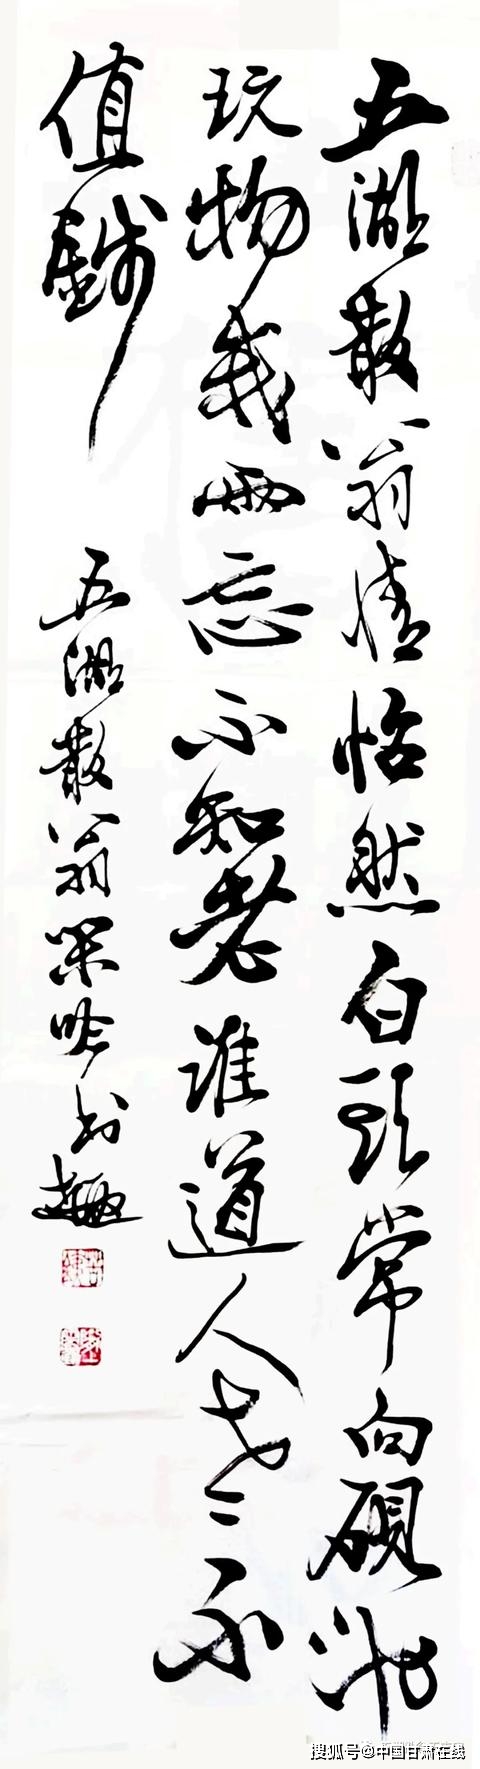 五湖散翁情怡然白頭常向硯池
玩物我兩忘不知老誰道人老老不
值錢
五湖散翁果吟书趣
搜狐号@中国甘肃在线